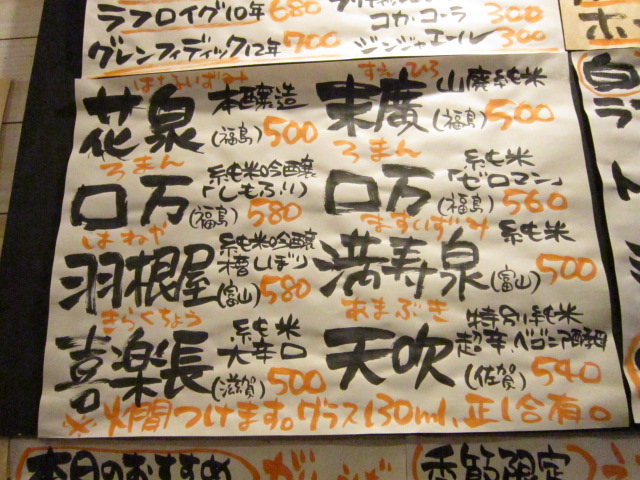 ラフロイグ10年 680
グレンフィディック12年 700
コカ・コーラ 300
ジンジャエール 300
はないずみ
花泉 本醸造 (福島) 500
すえひろ
末廣 山廃純米 (福島) 500
ろまん
口万 純米吟醸 (福島) 580
ろまん
口万 純米 「ゼロマン」 (福島) 560
はねや
羽根屋 純米吟醸 槽しぼり (富山) 580
ますいずみ
満寿泉 純米 (富山) 500
きらくちょう
喜楽長 純米 大辛口 (滋賀) 500
あまぶき
天吹 特別純米 超辛、ベゴニア酵母 (佐賀) 540
※火間つけます。グラス130ml、正一合有。
本日のおすすめ
季節限定